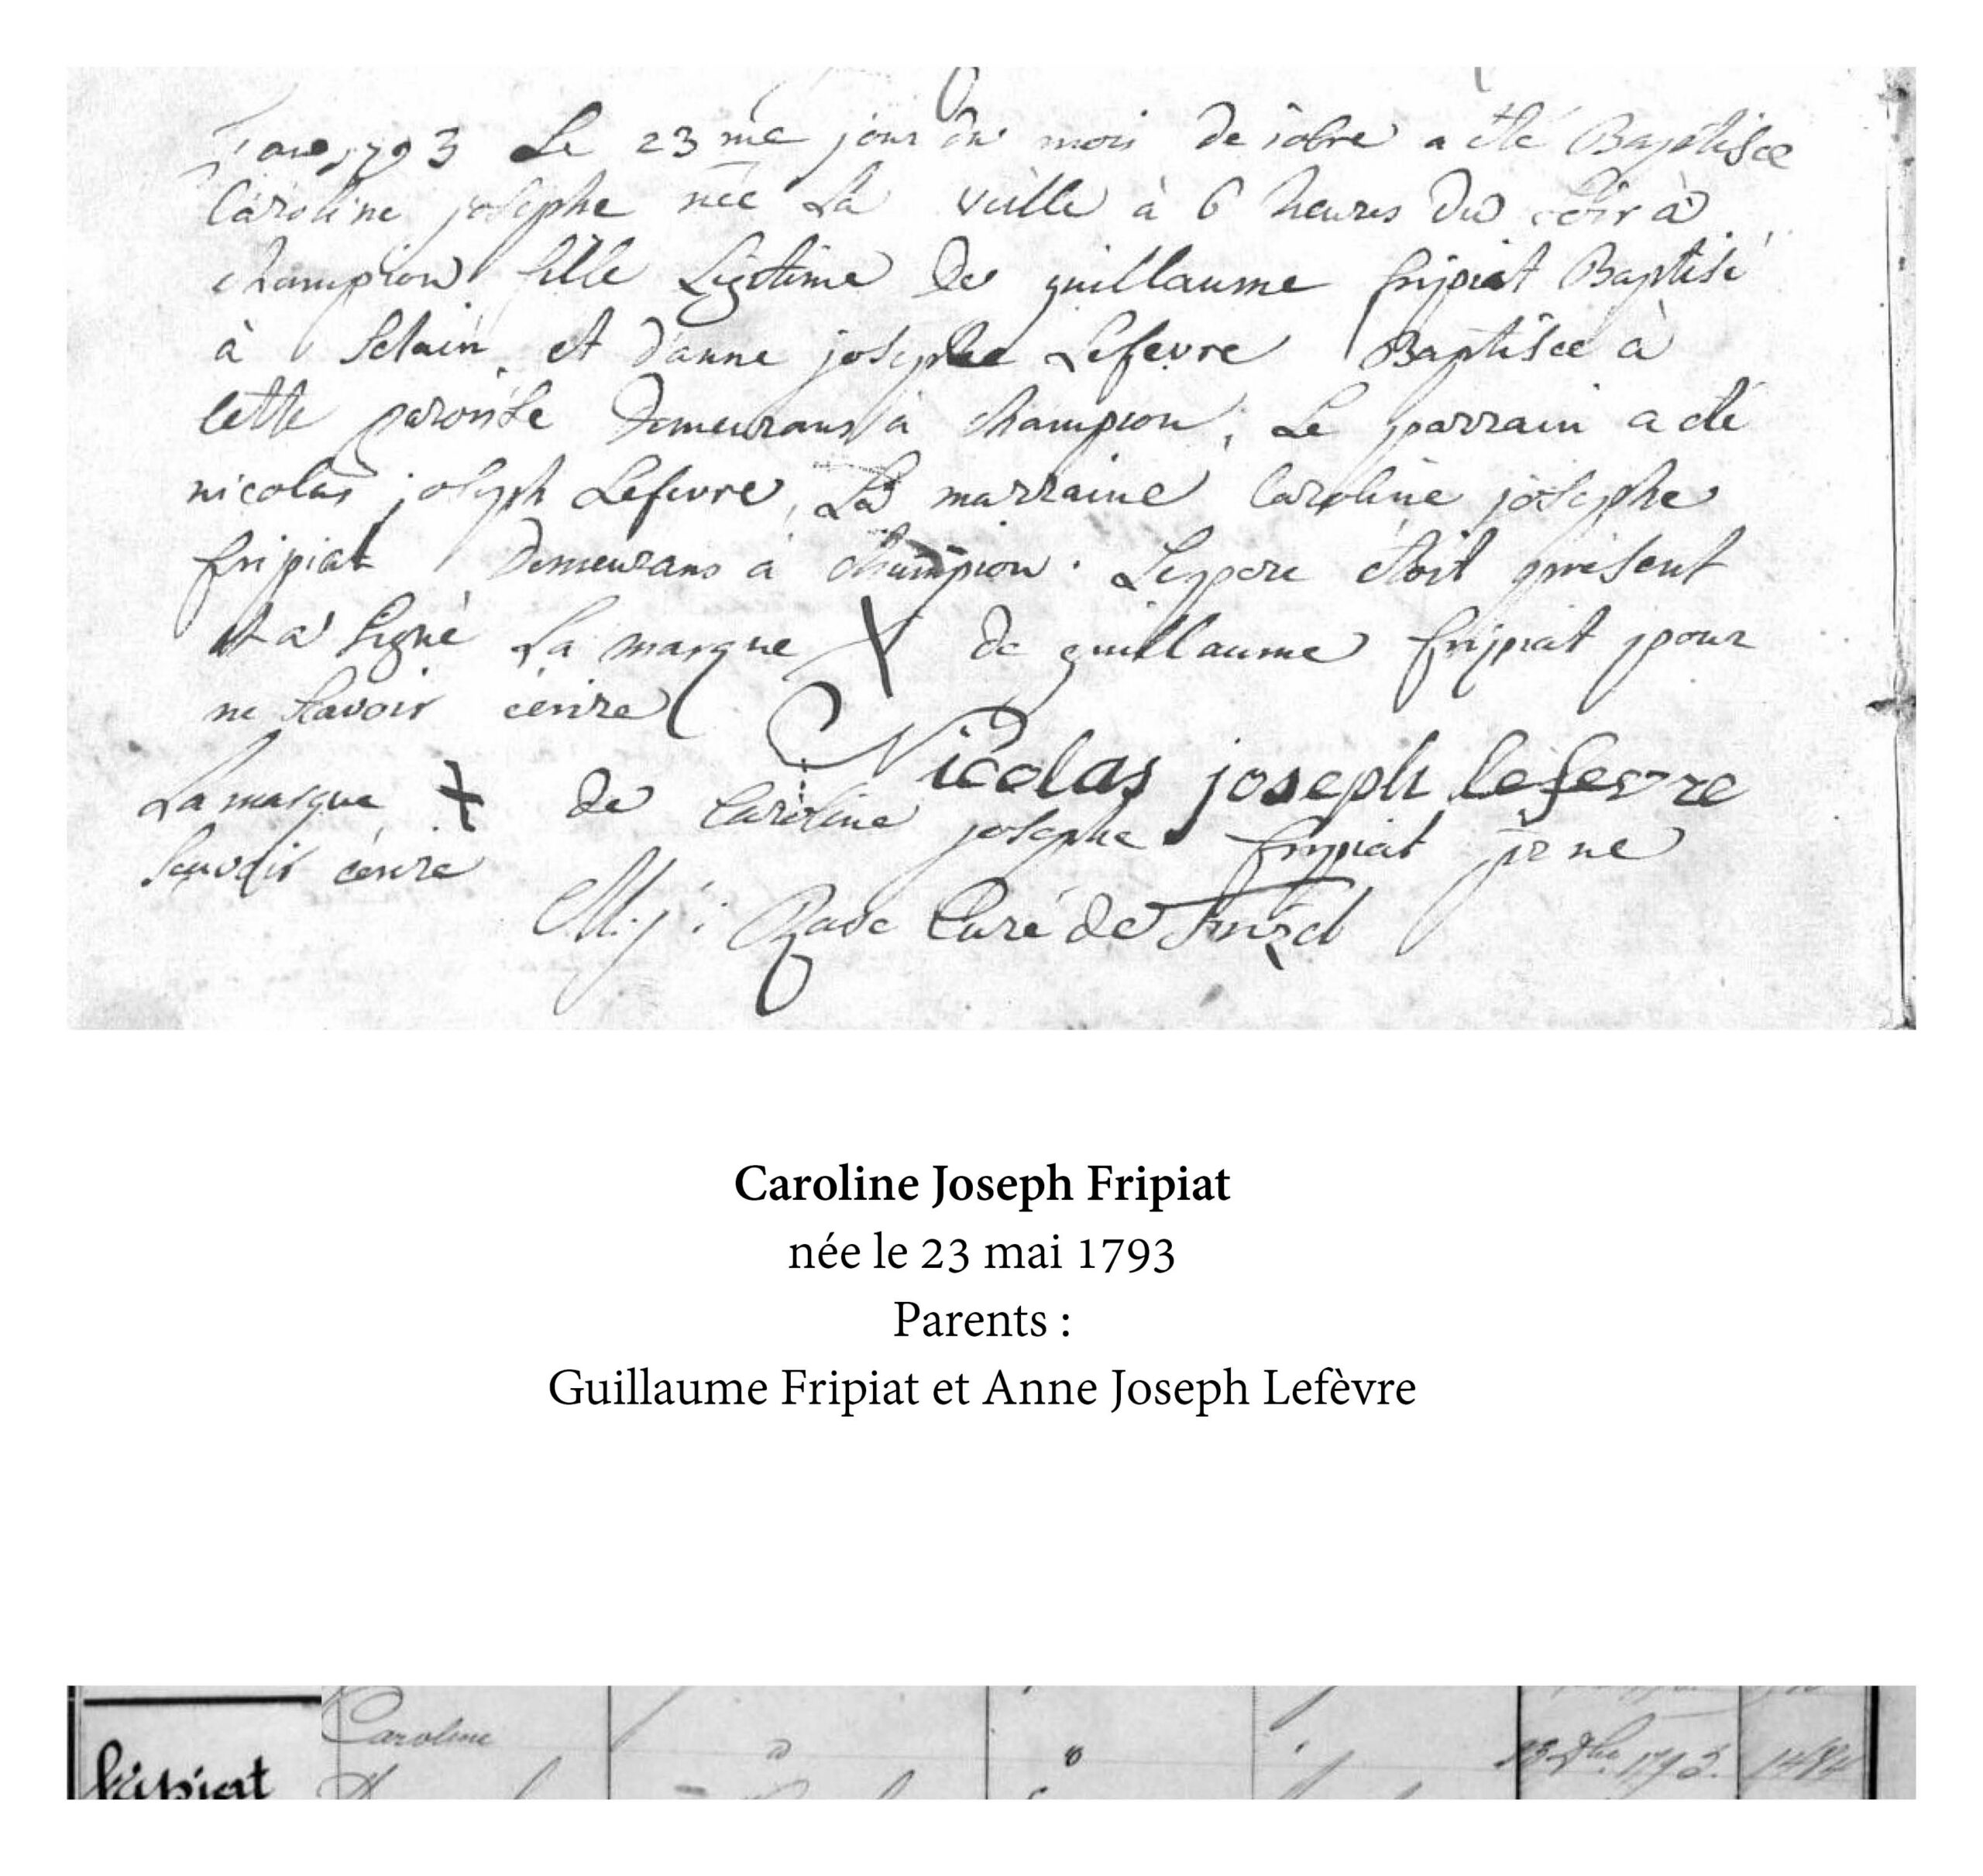 1793 Le 23 me jour du mois de a été Baptisée
Caroline josephe née La veille à 6 heures du soir à
champion fille Légitime de guillaume fripiat Baptisé
à Sclain et d'anne josephe Lefevre Baptisée à
cette paroisse demeurans à champion, Le parrain a été
nicolas joseph Lefevre, La marraine Caroline josephe
fripiat demeurans à champion. Le pere étoit présent
et a signé La marque X de guillaume fripiat pour
ne savoir écrire
Nicolas joseph lefevre
La marque X de Caroline josephe fripiat pr ne
scavoir écrire
Curé de
Caroline Joseph Fripiat
née le 23 mai 1793
Parents :
Guillaume Fripiat et Anne Joseph Lefèvre
Caroline
fripiat